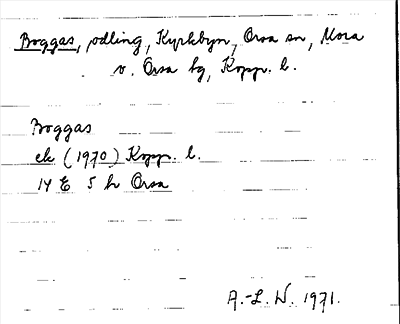 Boggas, odling, Kyrkbyn, Orsa sn, Mora
v. Orsa tg, Kopp. l.
Boggas
ek (1970) Kopp. l.
14 E 5 h Orsa
A.-L. W. 1971.